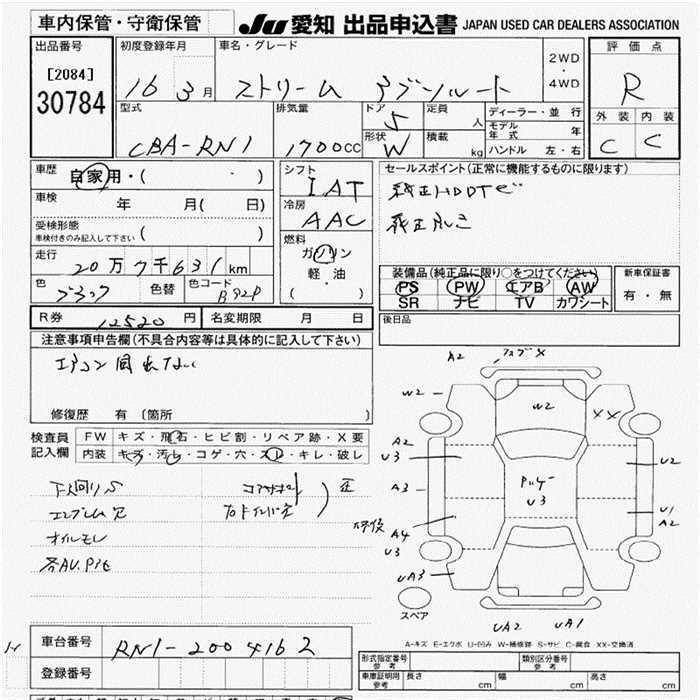 車内保管・守衛保管
JU 愛知 出品申込書 JAPAN USED CAR DEALERS ASSOCIATION
出品番号
[2084]
30784
初度登録年月
16 3月
車名・グレード
ストリーム アブソルート
2WD
・
4WD
評価点
R
外装 内装
C C
型式
CBA-RN1
排気量
1700CC
ドア
5
形状
W
定員
人
積載
kg
ディーラー・並行
モデル年式 年
ハンドル 左・右
車歴
自家用・( ・ )
車検
年 月( 日)
受検形態
車検付きのみ記入して下さい ( )
走行
20万7千631km
色
ブラック
色替
色コード
B92P
シフト
IAT
冷房
AAC
燃料
ガソリン
軽・油
( ・ )
セールスポイント(正常に機能するものに限ります)
純正HDDナビ
装備品(純正品に限り○をつけてください)
PS PW エアB AW
SR ナビ TV カワシート
新車保証書
有・無
R券 12520円
名変期限 月 日
後日品
注意事項申告欄(不具合内容等は具体的に記入して下さい)
エアコン
修復歴 有〔箇所 〕
検査員
記入欄
FW キズ・飛石・ヒビ割・リペア跡・X要
内装 キズ・汚レ・コゲ・穴・スレ・キレ・破レ
下回りS
エンブレム欠
オイルモレ
A2
W2
W2
XX
A2
U3
A3
A4
U3
UA3
U3
U2
U1
A2
UA2
UA1
スペア
A-キズ E-エクボ U-凹み W-補修跡 S-サビ C-腐食 XX-交換済
車台番号 RN1-2004162
登録番号
形式指定番号
参考
類別区分番号
参考
車庫証明用
参考
長さ cm
幅 cm
高さ cm